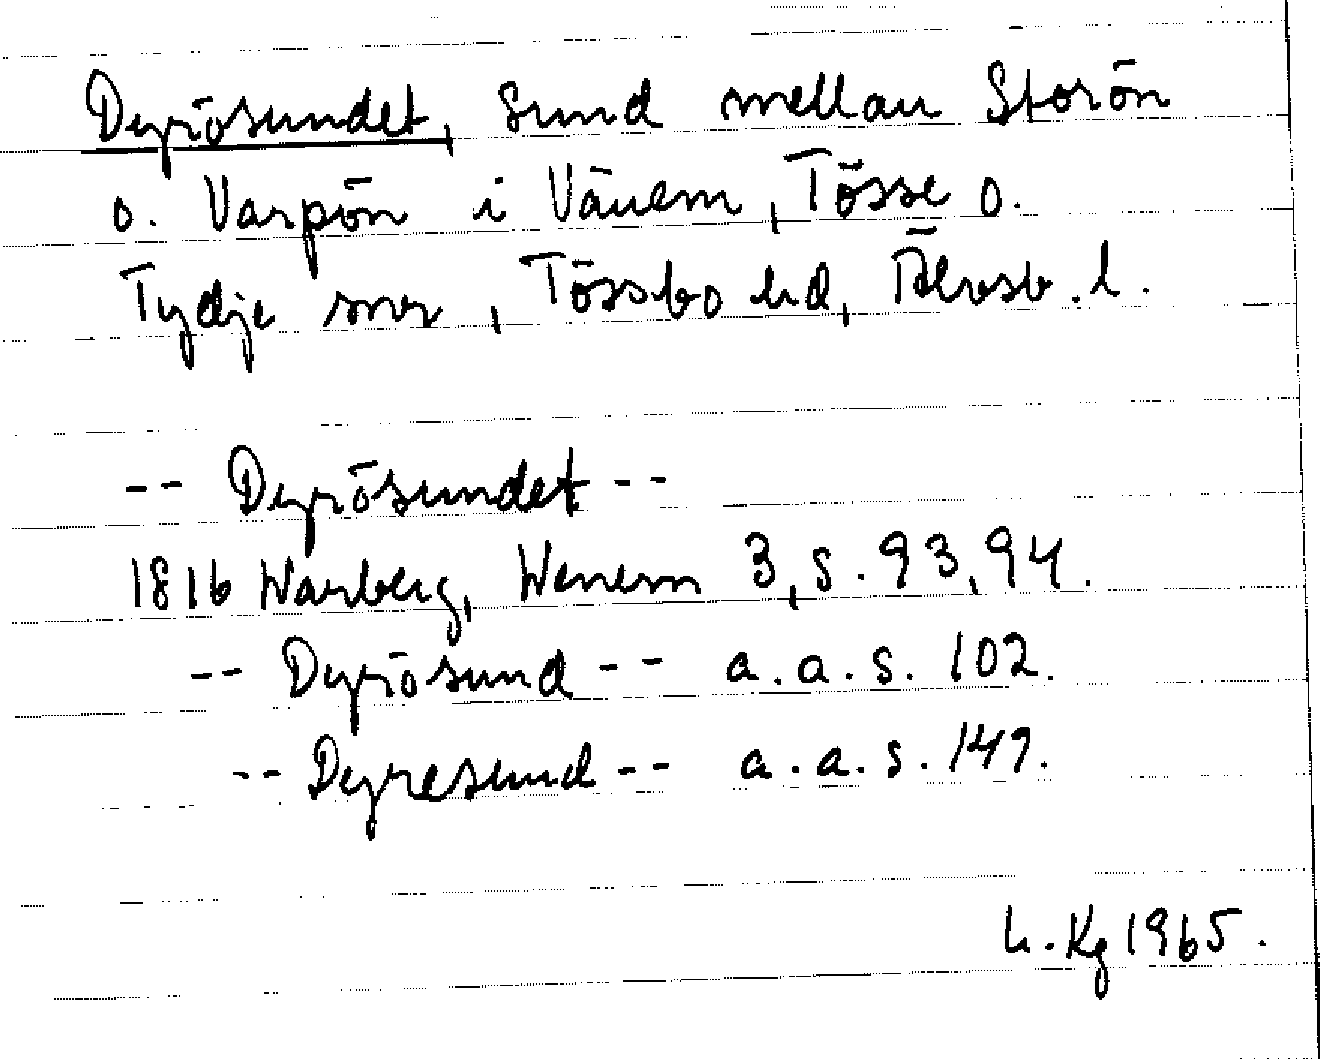 Dyrösundet, sund mellan Storön
o. Varpön i Vänern, Tösse o.
Tydje snr, Tössbo hd, Älvsb. l.
-- Dyrösundet --
1816 Warberg, Wenern 3, s. 93, 94.
-- Dyrösund -- a. a. s. 102.
-- Dyresund -- a. a. s. 147.
L. Kg 1965.